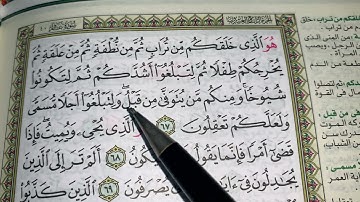 هُوَ ٱلَّذِى خَلَقَكُم مِّن تُرَابٍ ثُمَّ مِن نُّطْفَةٍ ثُمَّ مِنْ عَلَقَةٍ ثُمَّ
يُخْرِجُكُمْ طِفْلًا ثُمَّ لِتَبْلُغُوٓا۟ أَشُدَّكُمْ ثُمَّ لِتَكُونُوا۟
شُيُوخًا وَمِنكُم مَّن يُتَوَفَّىٰ مِن قَبْلُ وَلِتَبْلُغُوٓا۟ أَجَلًا مُّسَمًّى
وَلَعَلَّكُمْ تَعْقِلُونَ ٦٧ ٱلَّذِى يُحْىِۦ وَيُمِيتُ فَإِذَا
قَضَىٰٓ أَمْرًا فَإِنَّمَا يَقُولُ ٦٨ أَلَمْ تَرَ إِلَى ٱلَّذِينَ
يُجَٰدِلُونَ فِىٓ ءَايَٰتِ يُصْرَفُونَ ٦٩ ٱلَّذِينَ كَذَّبُوا۟